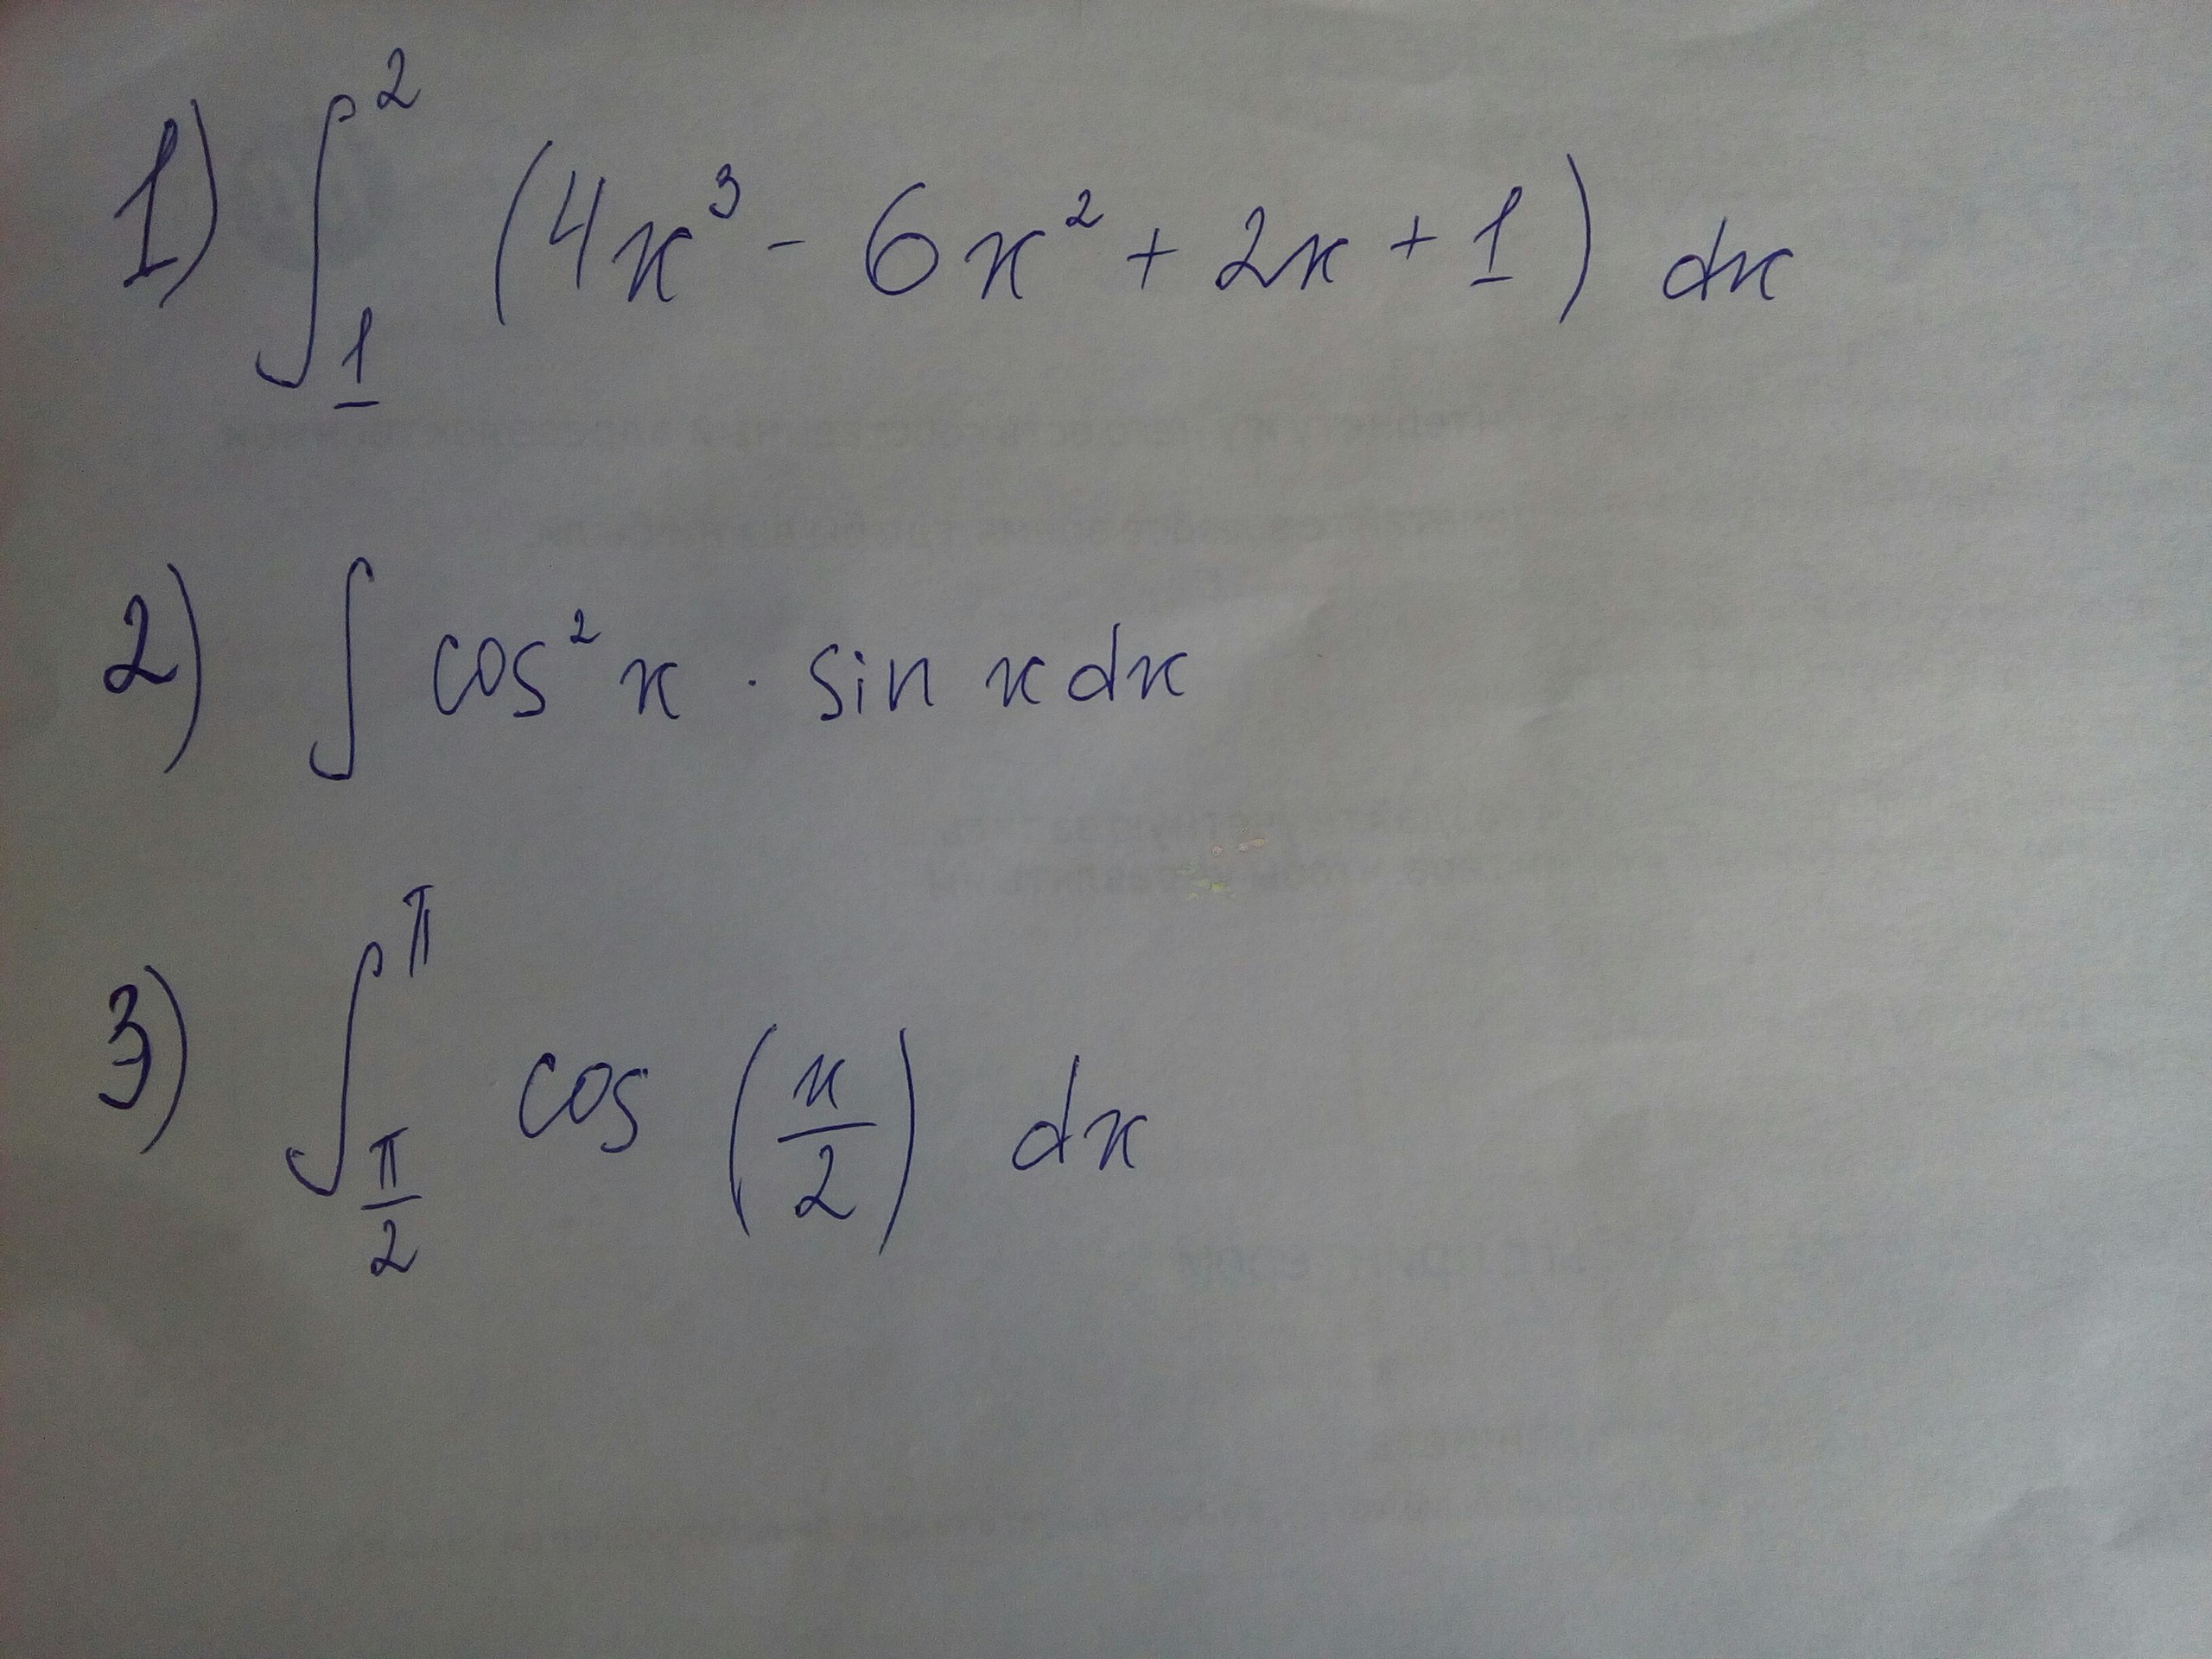 1) ∫₁² (4x³ - 6x² + 2x + 1) dx
2) ∫ cos²x · sin x dx
3) ∫_{π/2}^{π} cos (x/2) dx